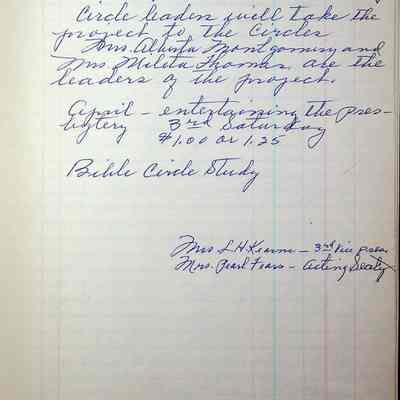 Circle leaders will take the
project to the Circles
Mrs. Alberta Montgomery and
Mrs. Mileta Thomas are the
leaders of the project.
April – entertaining the pres-
bytery 3rd Saturday
$1.00 or 1.25
Bible Circle Study
Mrs L H Kearns – 3rd Vice pres.
Mrs. Pearl Fears – Acting Secty